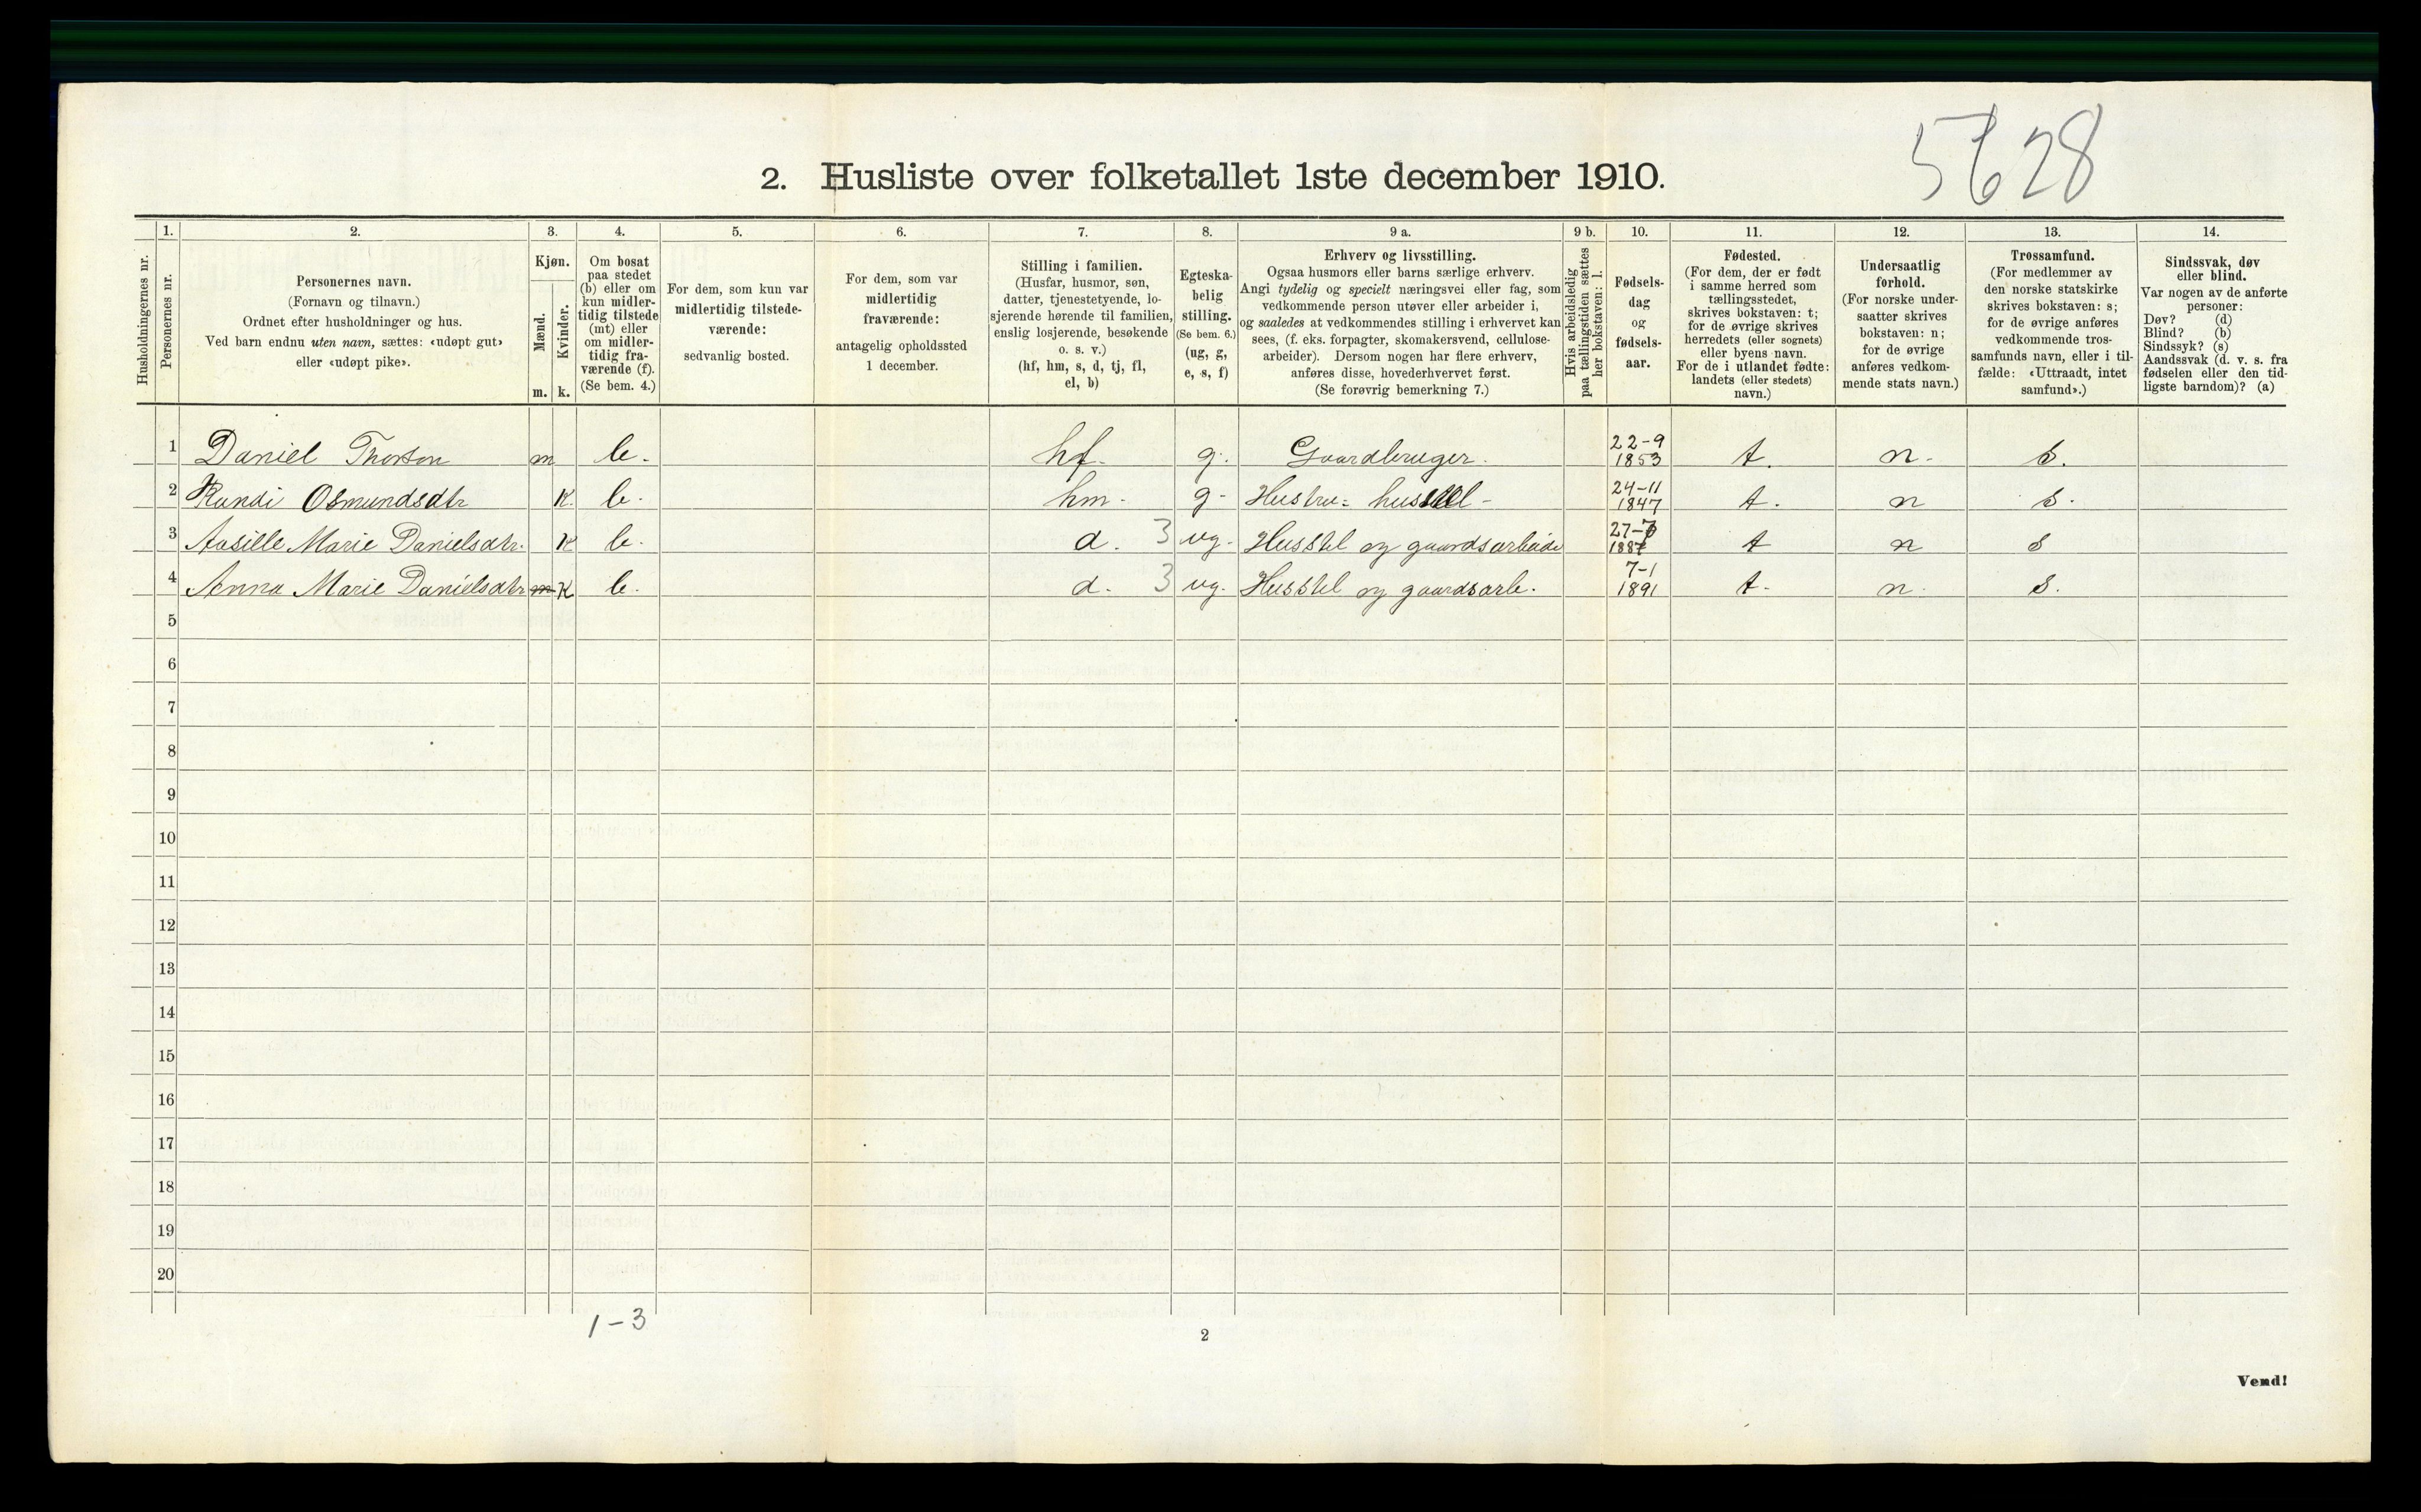 5628
2. Husliste over folketallet 1ste december 1910.
Husholdningernes nr.
1.
Personernes nr.
2.
Personernes navn.
(Fornavn og tilnavn.)
Ordnet efter husholdninger og hus.
Ved barn endnu uten navn, sættes: «udøpt gut»
eller «udøpt pike».
3.
Kjøn.
Mænd.
Kvinder.
m. k.
4.
Om bosat
paa stedet
(b) eller om
kun midler-
tidig tilstede
(mt) eller
om midler-
tidig fra-
værende (f).
(Se bem. 4.)
5.
For dem, som kun var
midlertidig tilstede-
værende:
sedvanlig bosted.
6.
For dem, som var
midlertidig
fraværende:
antagelig opholdssted
1 december.
7.
Stilling i familien.
(Husfar, husmor, søn,
datter, tjenestetyende, lo-
sjerende hørende til familien,
enslig losjerende, besøkende
o. s. v.)
(hf, hm, s, d, tj, fl,
el, b)
8.
Egteska-
belig
stilling.
(Se bem. 6.)
(ug, g,
e, s, f)
9 a.
Erhverv og livsstilling.
Ogsaa husmors eller barns særlige erhverv.
Angi tydelig og specielt næringsvei eller fag, som
vedkommende person utøver eller arbeider i,
og saaledes at vedkommendes stilling i erhvervet kan
sees, (f. eks. forpagter, skomakersvend, cellulose-
arbeider). Dersom nogen har flere erhverv,
anføres disse, hovederhvervet først.
(Se forøvrig bemerkning 7.)
9 b.
Hvis arbeidsledig
paa tællingstiden sættes
her bokstaven: l.
10.
Fødsels-
dag
og
fødsels-
aar.
11.
Fødested.
(For dem, der er født
i samme herred som
tællingsstedet,
skrives bokstaven: t;
for de øvrige skrives
herredets (eller sognets)
eller byens navn.
For de i utlandet fødte:
landets (eller stedets)
navn.)
12.
Undersaatlig
forhold.
(For norske under-
saatter skrives
bokstaven: n;
for de øvrige
anføres vedkom-
mende stats navn.)
13.
Trossamfund.
(For medlemmer av
den norske statskirke
skrives bokstaven: s;
for de øvrige anføres
vedkommende tros-
samfunds navn, eller i til-
fælde: «Uttraadt, intet
samfund».)
14.
Sindssvak, døv
eller blind.
Var nogen av de anførte
personer:
Døv? (d)
Blind? (b)
Sindssyk? (s)
Aandssvak (d. v. s. fra
fødselen eller den tid-
ligste barndom)? (a)
1 Daniel Thorson m b. hf. g. Gaardbruger. 22-9 1853 t. n. s.
2 Randi Osmundsdtr K. b. hm. g- Hustru: husstel - 24-11 1847 t. n s.
3 Aasille Marie Danielsdtr. K b. d. 3 ug. Husstel og gaardsarbeide 27-7 1887 t n s
4 Anna Marie Danielsdtr m K b. d. 3 ug. Husstel og gaardsarb. 7-1 1891 t. n. s.
5
6
7
8
9
10
11
12
13
14
15
16
17
18
19
20
1-3
2
Vend!